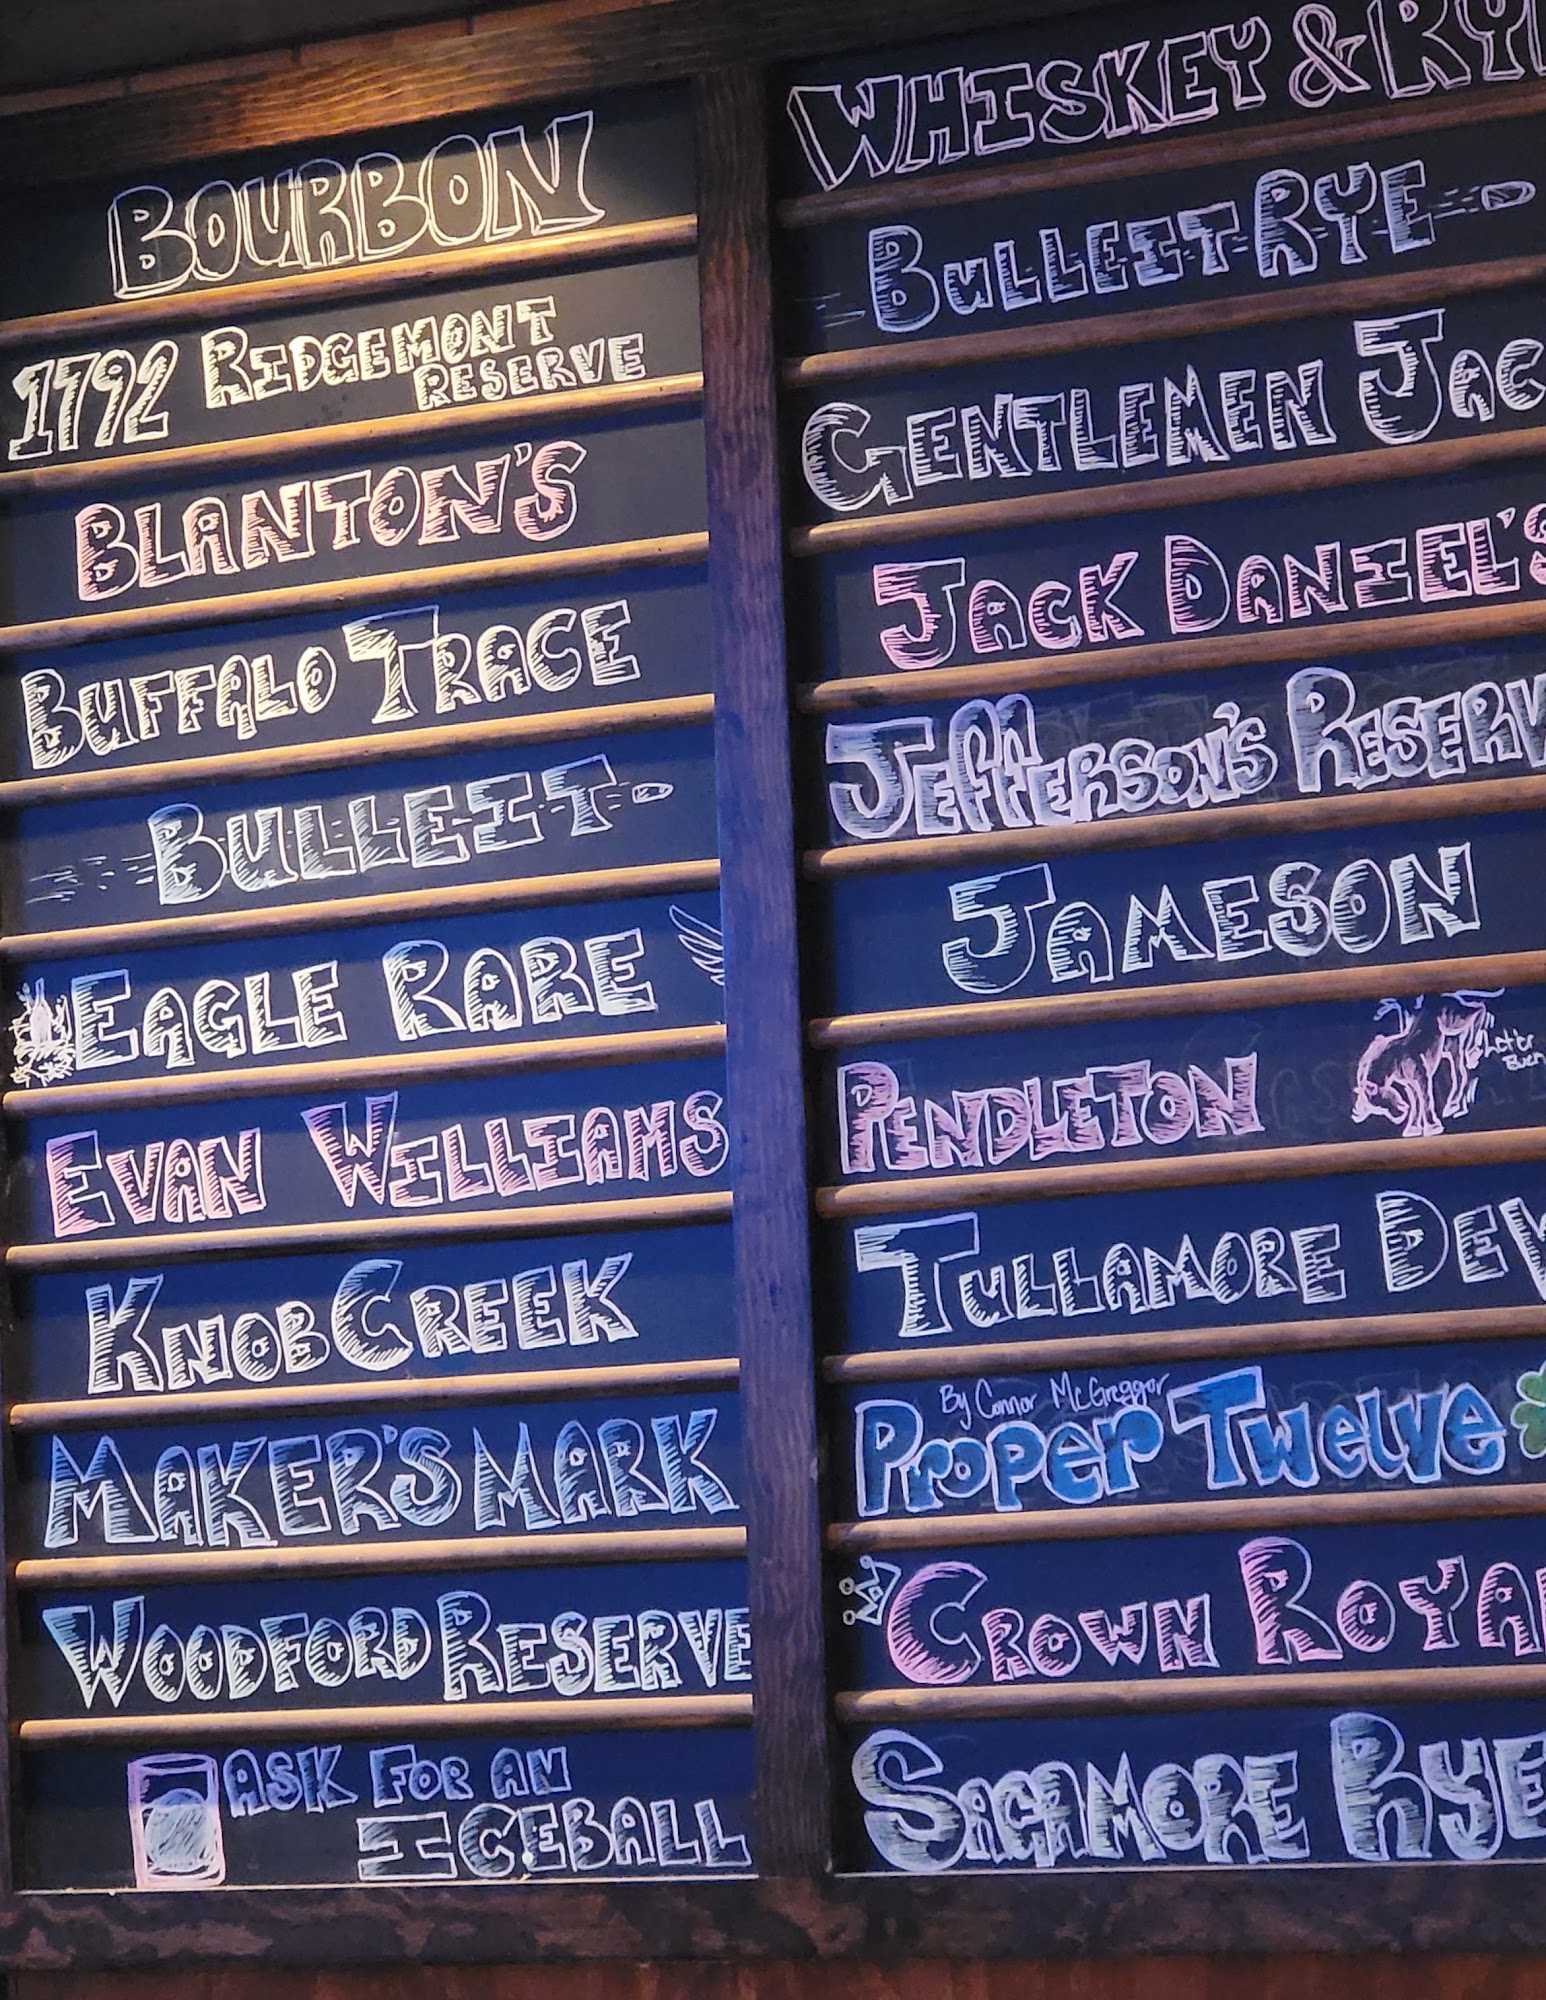 BOURBON
1792 RIDGEMONT
RESERVE
BLANTON'S
BUFFALO TRACE
BULLEIT
EAGLE RARE
EVAN WILLIAMS
KNOB CREEK
MAKER'S MARK
WOODFORD RESERVE
ASK FOR AN
ICEBALL
WHISKEY & RY
BULLEIT RYE
GENTLEMEN JAC
JACK DANIEL'S
JEFFERSON'S RESERV
JAMESON
PENDLETON
Let'r
Buck
TULLAMORE DEW
By Connor McGreggor
PROPER TWELVE
CROWN ROYA
SAGAMORE RYE